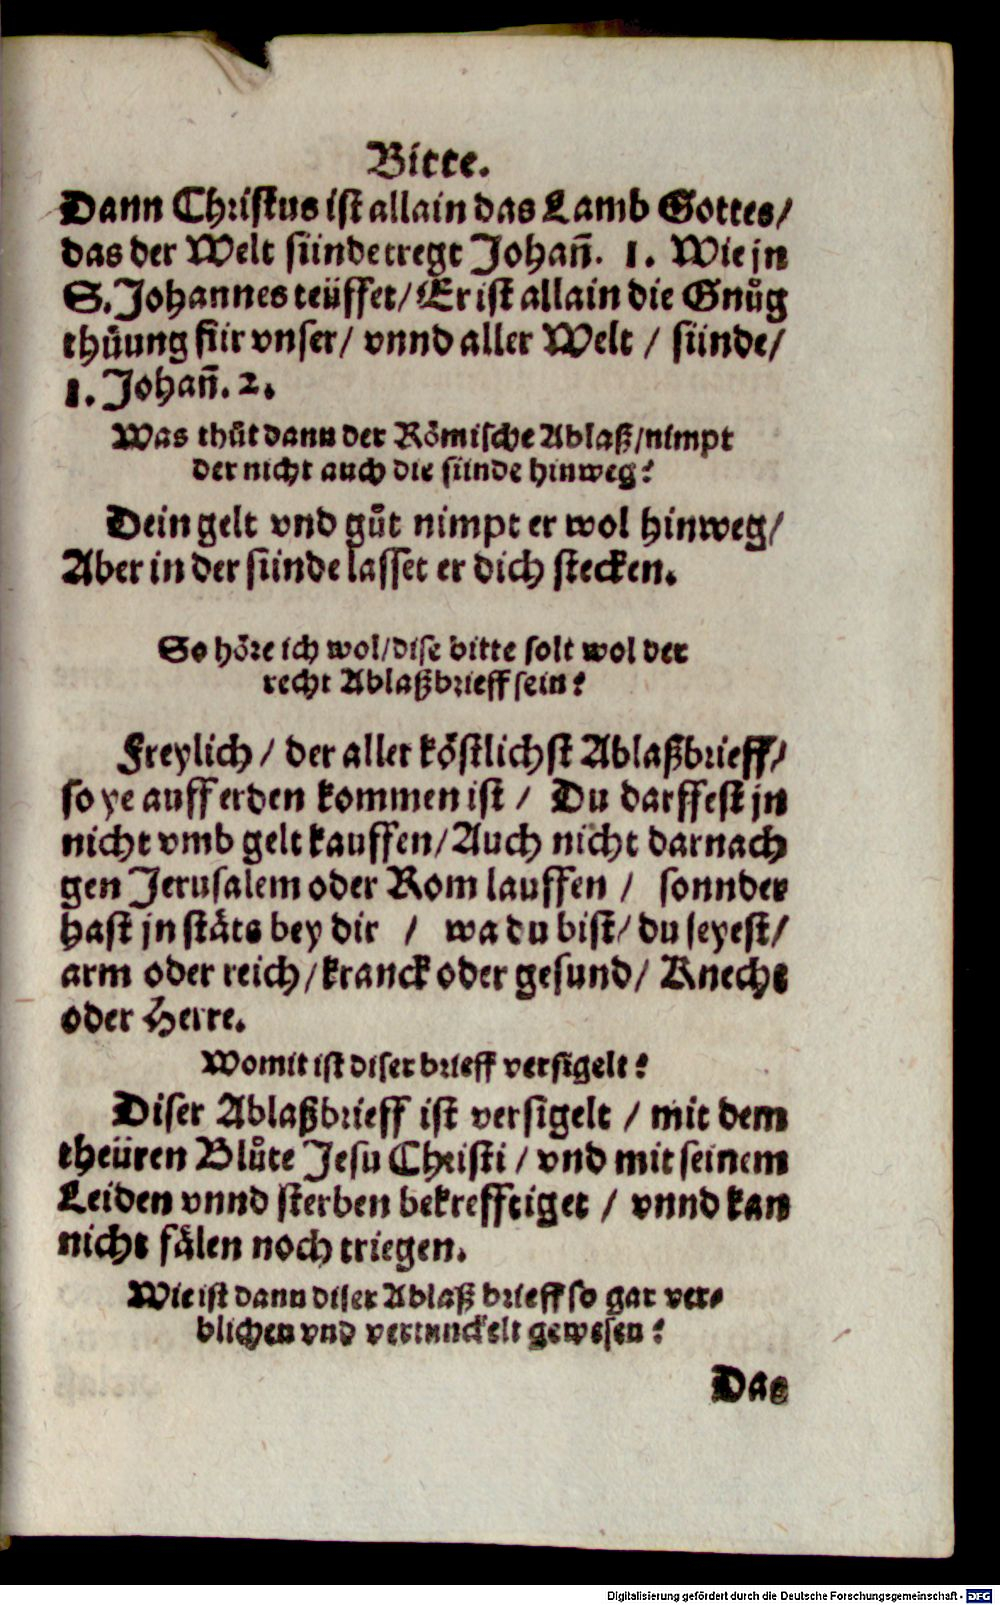 Bitte.
Dann Christus ist allain das Lamb Gottes/
das der Welt sünde tregt Johan̄. 1. Wie jn
S. Johannes teüffet/ Er ist allain die Gnůg
thůung für vnser/ vnnd aller Welt / sünde/
1. Johan̄. 2.
Was thůt dann der Römische Ablaß/nimpt
der nicht auch die sünde hinweg?
Dein gelt vnd gůt nimpt er wol hinweg/
Aber in der sünde lasset er dich stecken.
So höre ich wol/dise bitte solt wol der
recht Ablaßbrieff sein?
Freylich / der aller köstlichst Ablaßbrieff/
so ye auff erden kommen ist / Du darffest jn
nicht vmb gelt kauffen/ Auch nicht darnach
gen Jerusalem oder Rom lauffen / sonnder
hast jn stäts bey dir / wa du bist/ du seyest/
arm oder reich/kranck oder gesund/ Knecht
oder Herre.
Womit ist diser brieff versigelt?
Diser Ablaßbrieff ist versigelt / mit dem
theüren Blůte Jesu Christi / vnd mit seinem
Leiden vnnd sterben bekrefftiget / vnnd kan
nicht fälen noch triegen.
Wie ist dann diser Ablaß brieff so gar ver⸗
blichen vnd vertunckelt gewesen?
Das
Digitalisierung gefördert durch die Deutsche Forschungsgemeinschaft - DFG